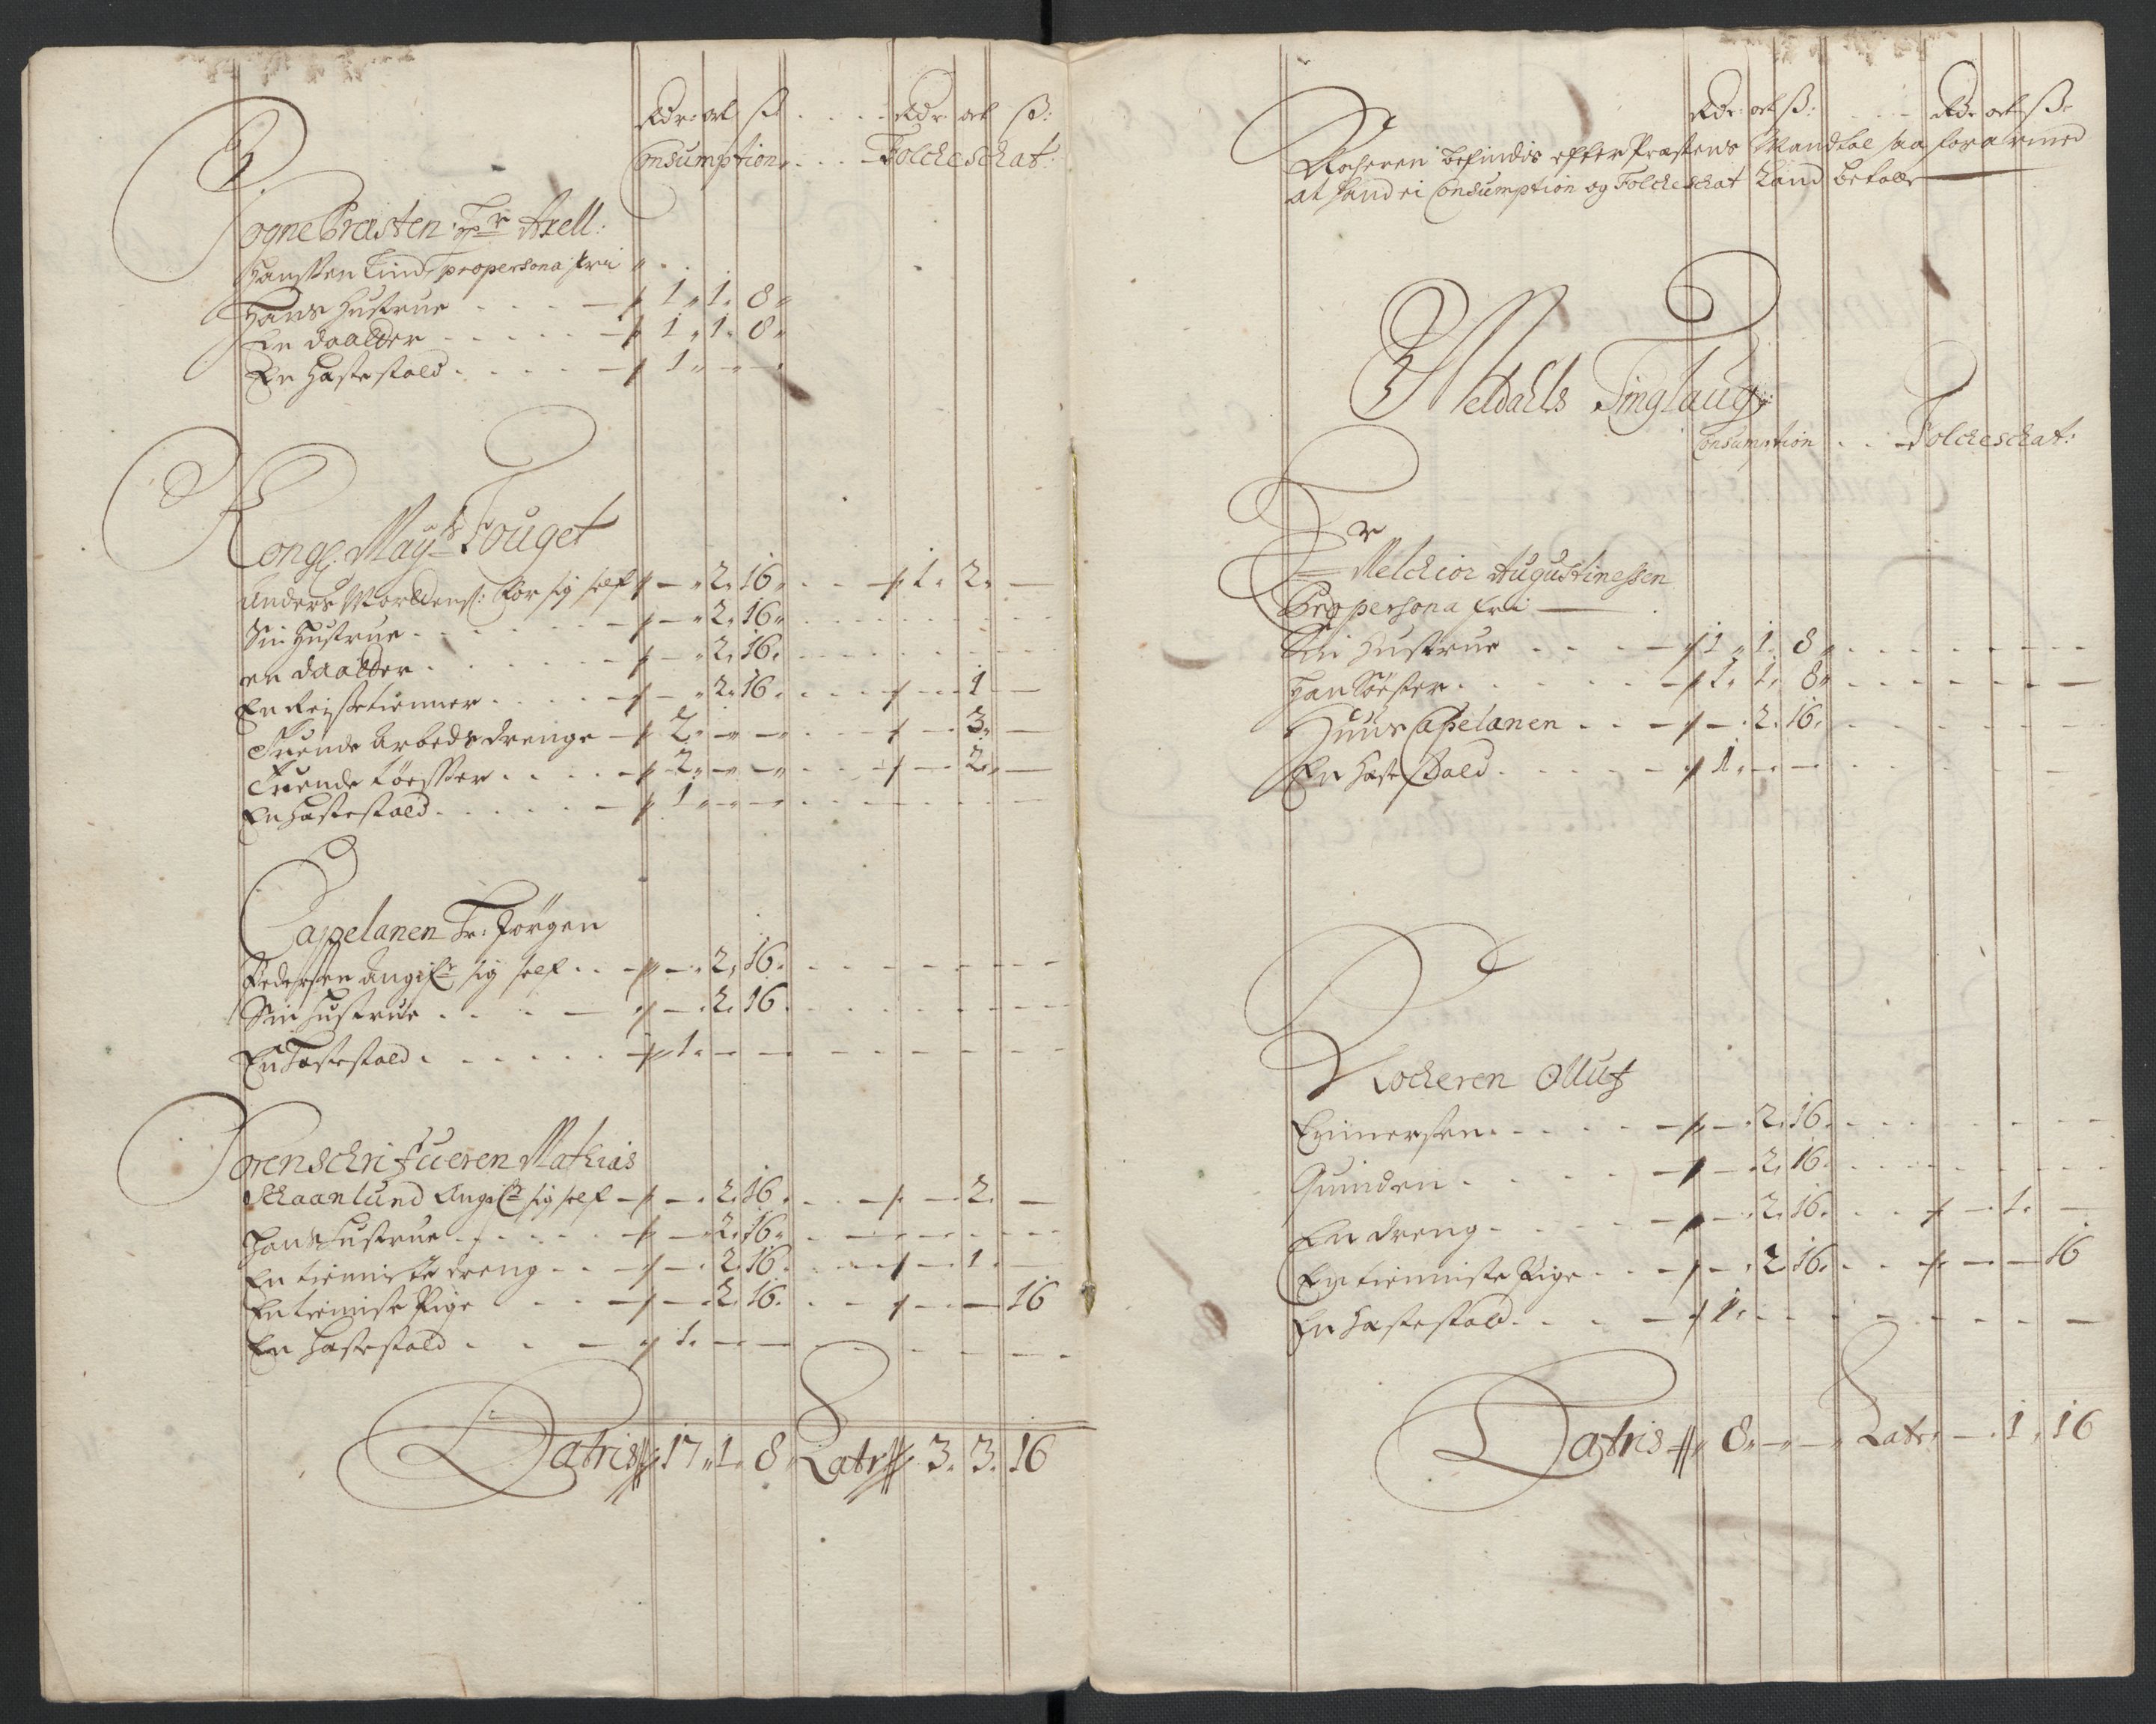 Rdr: ort ß . . . . Rdr ort ß:
Consumption . . . Folcheschat:
Sogne Præsten Hr Axell:
Hanssen Lind propersona fri
Hans Hustrue . . . 1 „ 1 „ 8 „
En daatter . . . . 1 „ 1 „ 8 „
En Hæstestald . . . . 1 „ - „ -
Kongl. Mayts Fouget
Anders self - „ 2 „ 16 „ . . . 1 „ 2 „ -
Sin Hustrue . . . . - „ 2 „ 16 „
en daatter . . . . - „ 2 „ 16 „
En Reissetienner . . . . - „ 2 „ 16 „ . . . - „ 1 -
Tuende Arbeds drenge - 2 „ - „ - . . . - „ 3 „ -
Tuende Tøesser . . . . 2 „ - „ - . . . - „ 2 „ -
En Hæstestald . . . . 1 „ - „ -
Cappelanen Hr: Jørgen
Pedersen Angifr sig self . . - „ 2 „ 16 „
Sin Hustrue . . . - „ 2 „ 16
En Hæstestald . . . . . 1 „ - -
Sorenschrifueren Mathias
Schaanlund Angifr sig self - - „ 2 „ 16 „ . . - „ 2 „ -
Hans Hustrue . . . . - „ 2 „ 16 „
En tienniste dreng . . - „ 2 „ 16 „ . . - „ 1 „ -
En tieniste Pige . . . - „ 2 „ 16 „ . . - „ - 16
En Hæstestald . . . 1 „ - -
Latris 17 „ 1 „ 8 „ Latr 3 „ 3 „ 16
Rdr: ort ß: . . . Rdr ort ß
Klocheren befindis efter Præstens Mandtal saa forarmed
at hand ei Consumption og Folcheschat kand betalle
Meldahls Tinglaug:
Consumption . . . Folcheschat:
Hr
Melchior Augustinessen
Propersona fri
Sin Hustrue . . . 1 „ 1 „ 8 „
Hans Søster . . . . 1 „ 1 „ 8 „
Huus Capelanen . . . - „ 2 „ 16 „
En Hæstestald . . . . 1 „ - „ -
Klocheren Olluf
. . . . - „ 2 „ 16 „
Quinden . . . . - „ 2 „ 16 „
En dreng . . . . - „ 2 „ 16 „ . . - „ 1 „ -
En tienniste Pige . . - „ 2 „ 16 „ . . - „ - 16
En Hæstestald . . . 1 „
Latris 8 „ - „ - „ Latr - „ 1 „ 16